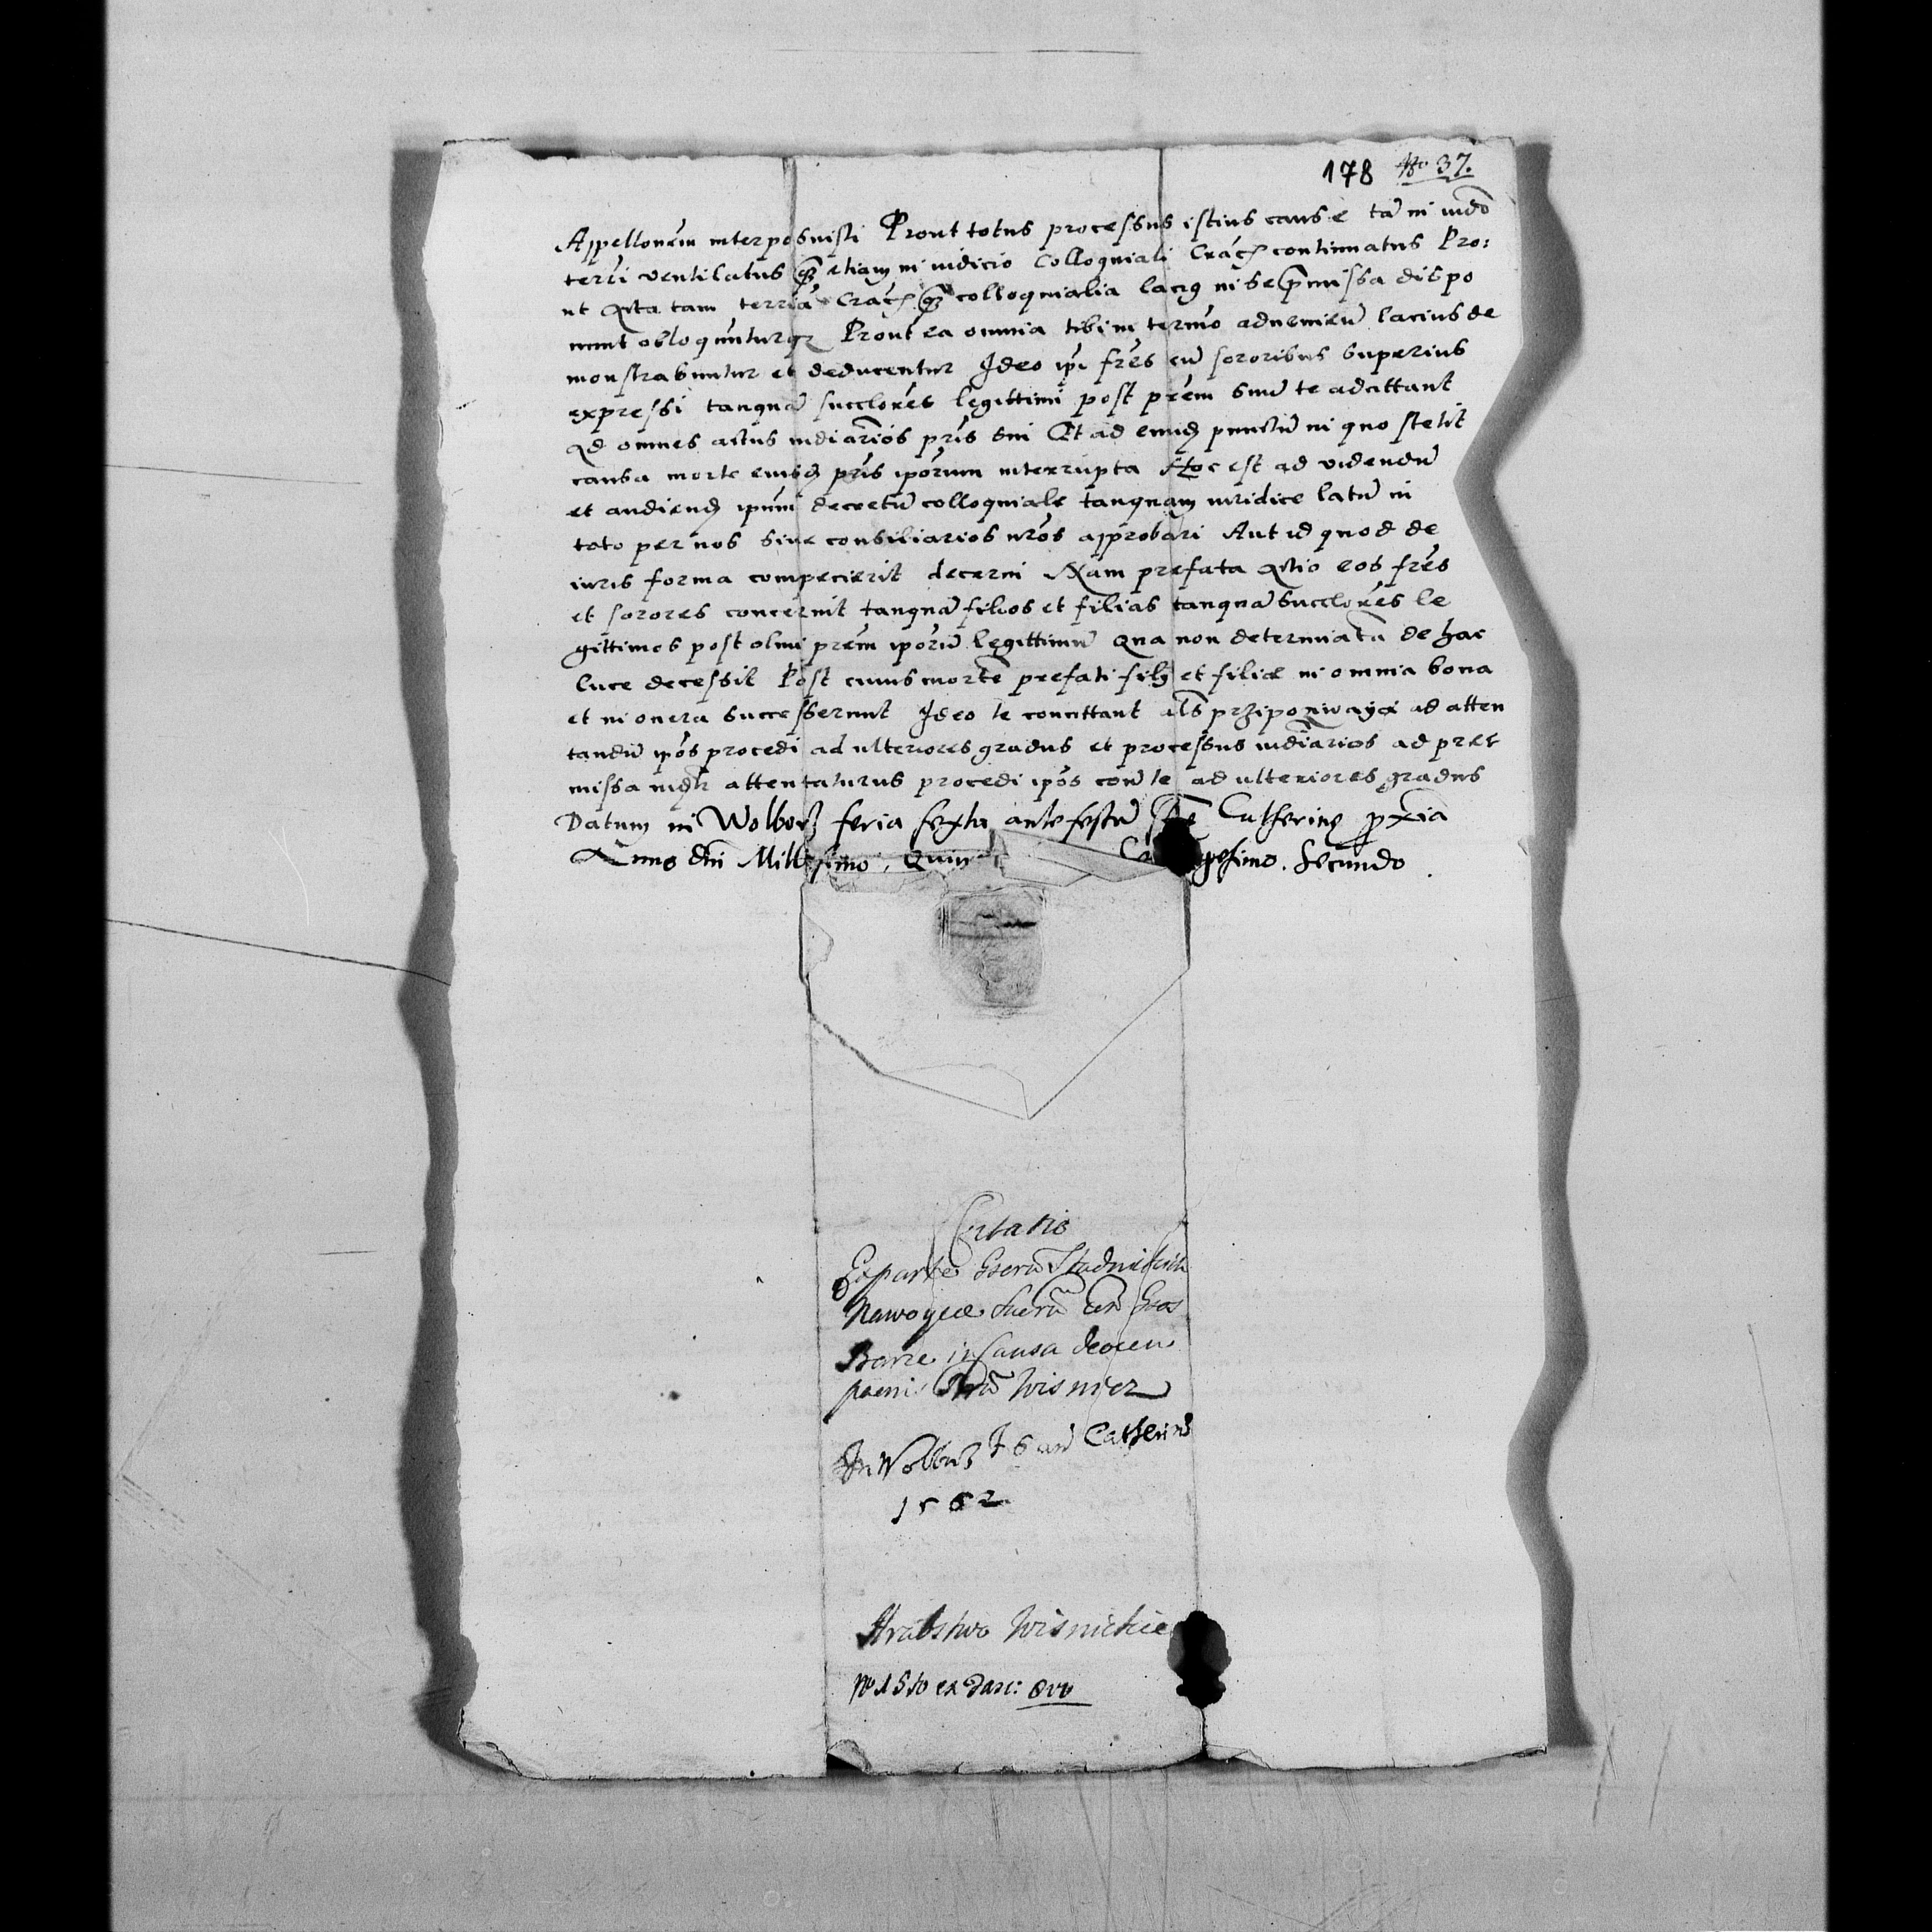 178 No 37.
Appellonem interposuisti Prout totus processus istius cause tã in iudõ
terri ventilatus qz etiam in iudicio Colloquiali Crac continuatus Pro:
ut Acta tam terria Crac qz colloquialia laciq in se pmissa dispo
nunt obloquuntur Prout ea omnia tibi in termo adueniẽ lacius de
monstrabuntur et deducentur Ideo ipi fres cũ sororibus superius
expressi tanquã succlores legittimi post prem suũ te adcittant
Ad omnes actus iudiarios pris sui Et ad eund punctũ in quo stetit
causa morte eiusd pris iporum interrupta Hoc est ad videndũ
et audiend ipum decretũ colloquiale tanquam iuridice latũ in
toto per nos siue consiliarios nros approbari Aut id quod de
iuris forma compecierit decerni Nam prefata Actio eos fres
et sorores concernit tanquã filios et filias tanquã succlores le
gittimos post olim prem iporũ legittimũ Qua non determiata de hac
luce decessit Post cuius mortẽ prefati filij et filiæ in omnia bona
et in onera successerunt Ideo te concittant als prziponwaya ad atten
tandũ ipos procedi ad ulteriores gradus et processus iudiarios ad pret
missa attentaturus procedi ipos con te ad ulteriores gradus
Datum in Wolborz feria sexta ante festũ Stẽ Catherinę pxia
Anno dni Millesimo. Quin gesimo. Secundo
Citatio
Exparte Gsorũ Stadnickich
Nawoyce cũ Gsos
Barze in Causa de
Wisnicz
In Wolbuz f 6 an Catherine
1562
Hrabstwo Wisnickie
No 1510 ex Fasc: